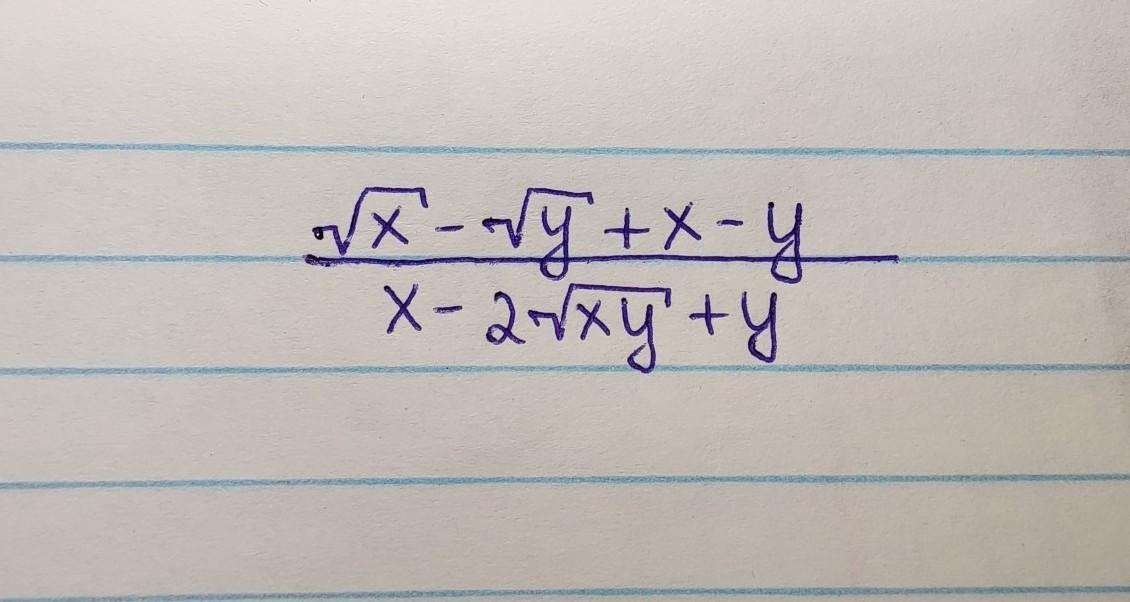 √x - √y + x - y
x - 2√xy + y